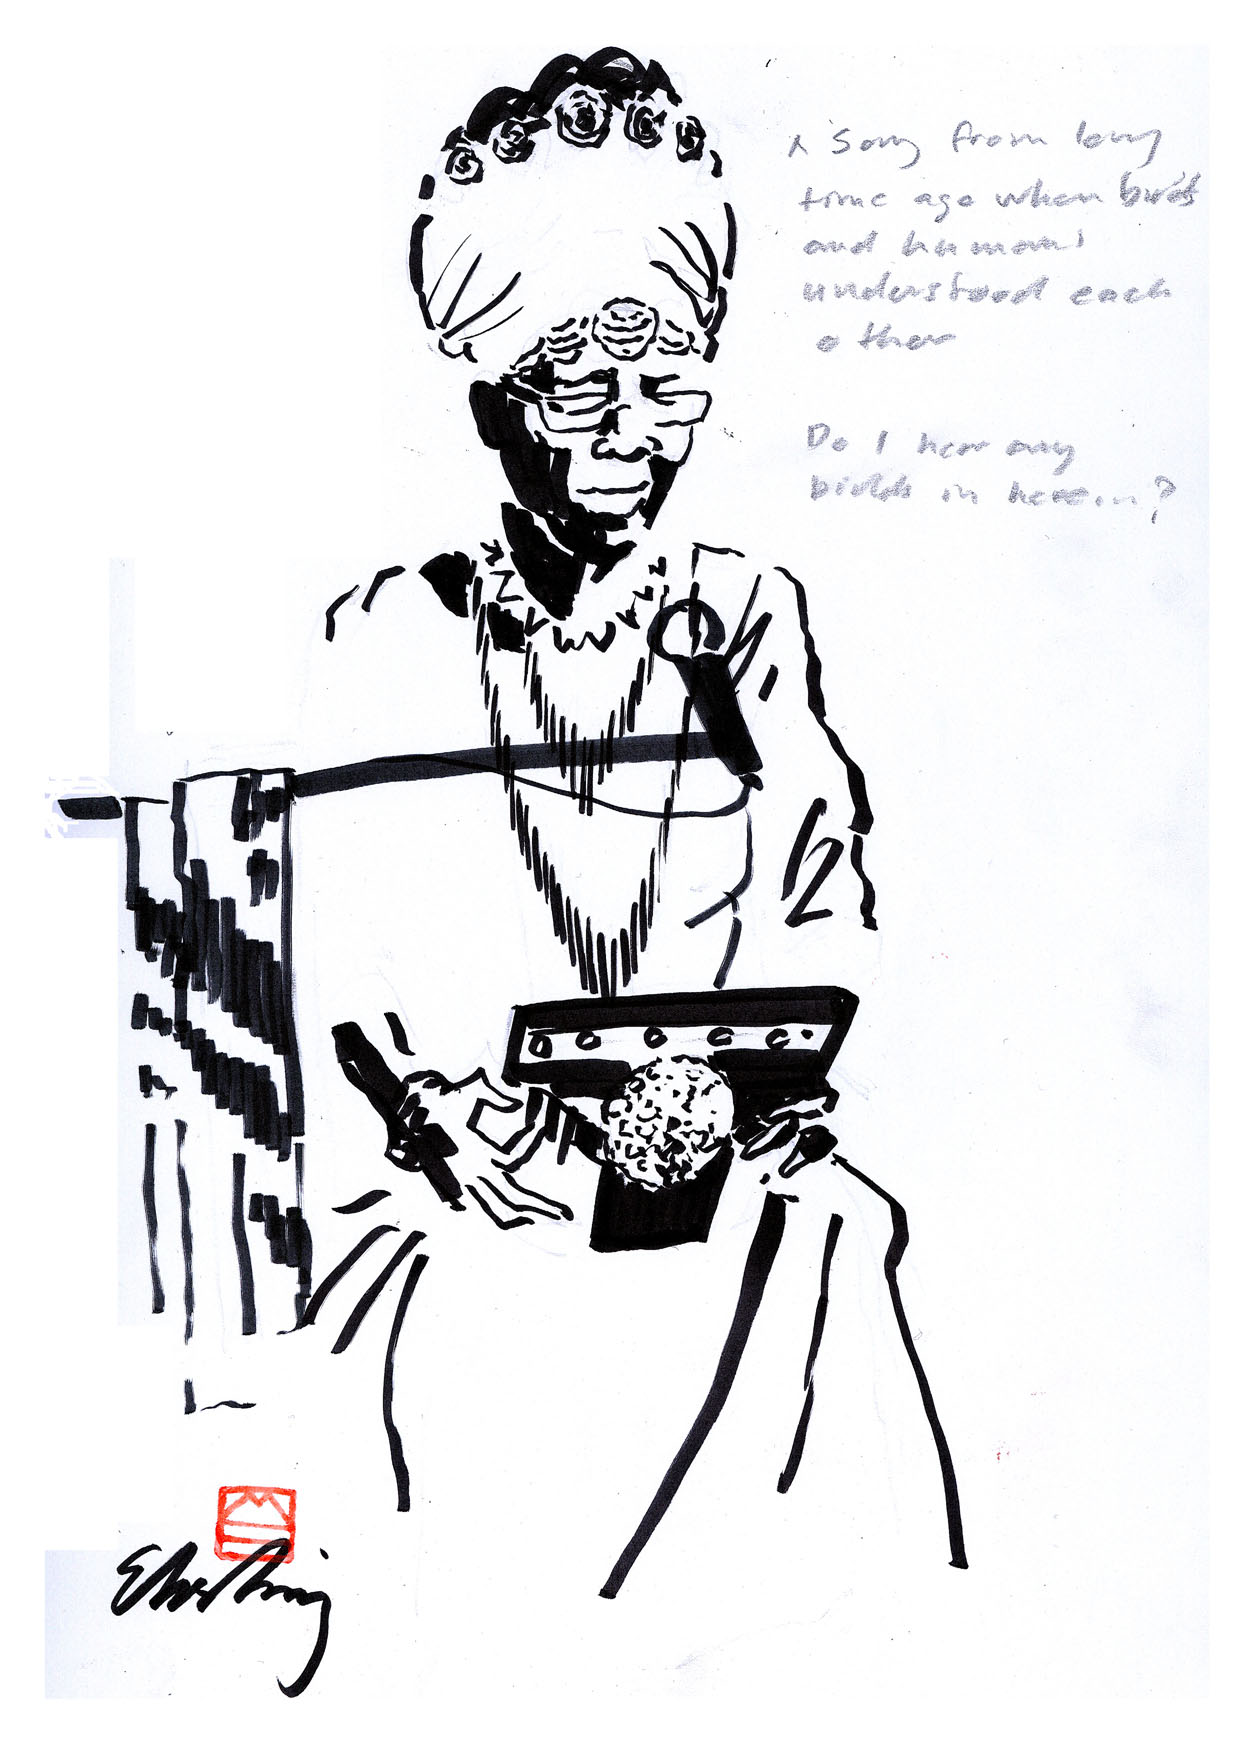 A Song from long
time ago when birds
and humans
understood each
other
Do I hear any
birds in here